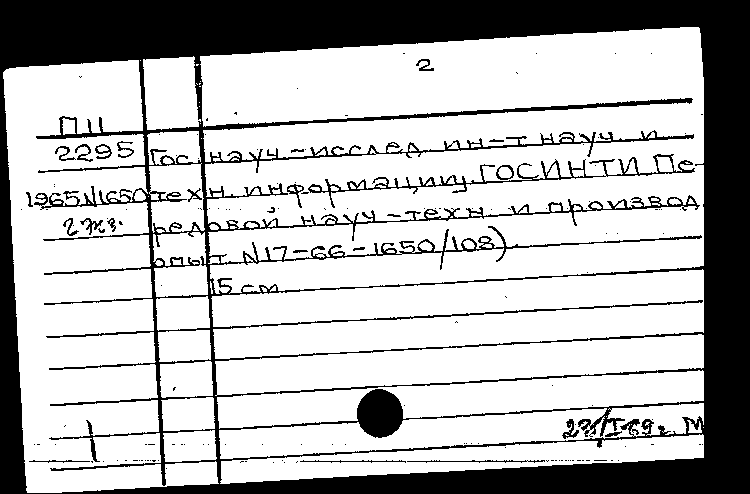 2
П11
2295 Гос. науч.-исслед. ин-т науч. и
1965 N1650 техн. информации. ГОСИНТИ. Пе-
2 экз. редовой науч.-техн. и производ.
опыт. N17-66-1650/108)
15 см.
М